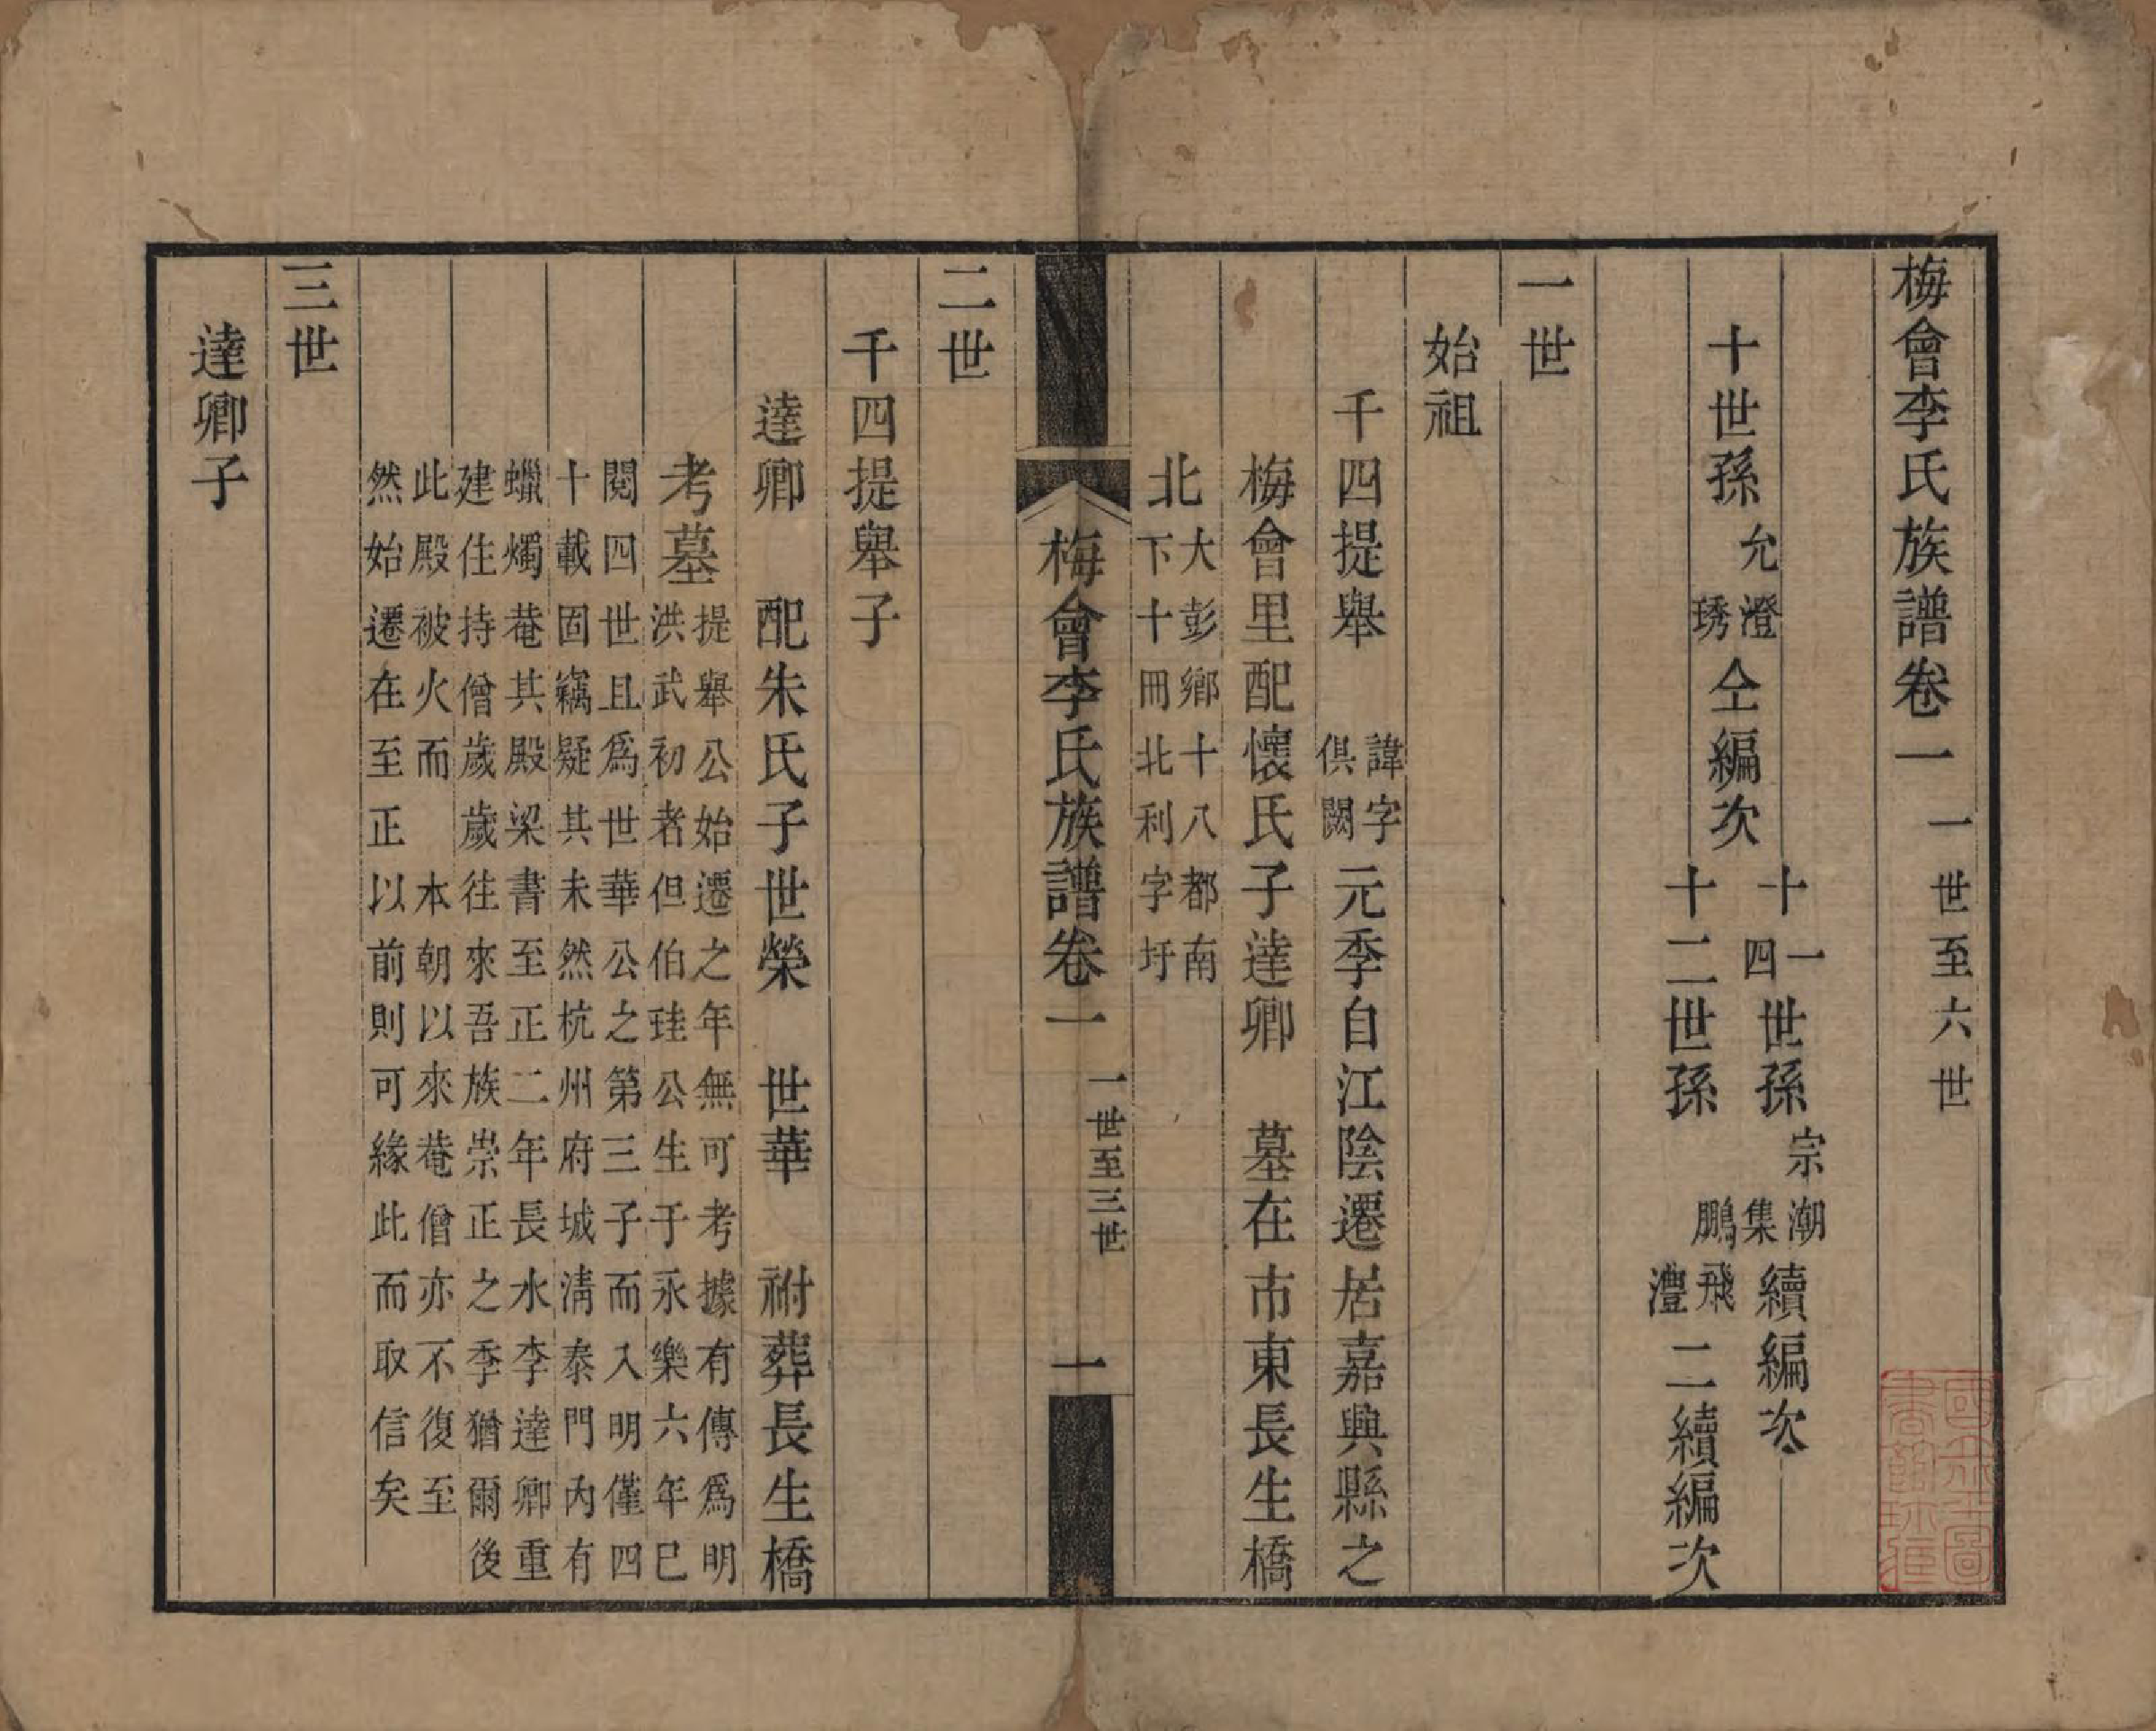 梅會李氏族譜卷一 一世至六世
十世孫 允澄琇 仝編次
十一四世孫 宗潮集 續編次
十二世孫 鵬飛澧 二續編次
一世
始祖
千四提舉 諱字俱闕 元季自江陰遷居嘉興縣之
梅會里配懷氏子達卿 墓在市東長生橋
北 大彭鄉十八都南
下十冊北利字圩
梅會李氏族譜卷一 一世至三世 一
二世
千四提舉子
達卿 配朱氏子世榮 世華 祔葬長生橋
考墓 提舉公始遷之年無可考據有傳爲明
洪武初者但伯珪公生于永樂六年已
閱四世且爲世華公之第三子而入明僅四
十載固竊疑其未然杭州府城清泰門內有
蠟燭菴其殿梁書至正二年長水李達卿重
建住持僧歲歲往來吾族崇正之季猶爾後
此殿被火而 本朝以來菴僧亦不復至
然始遷在至正以前則可緣此而取信矣
三世
達卿子